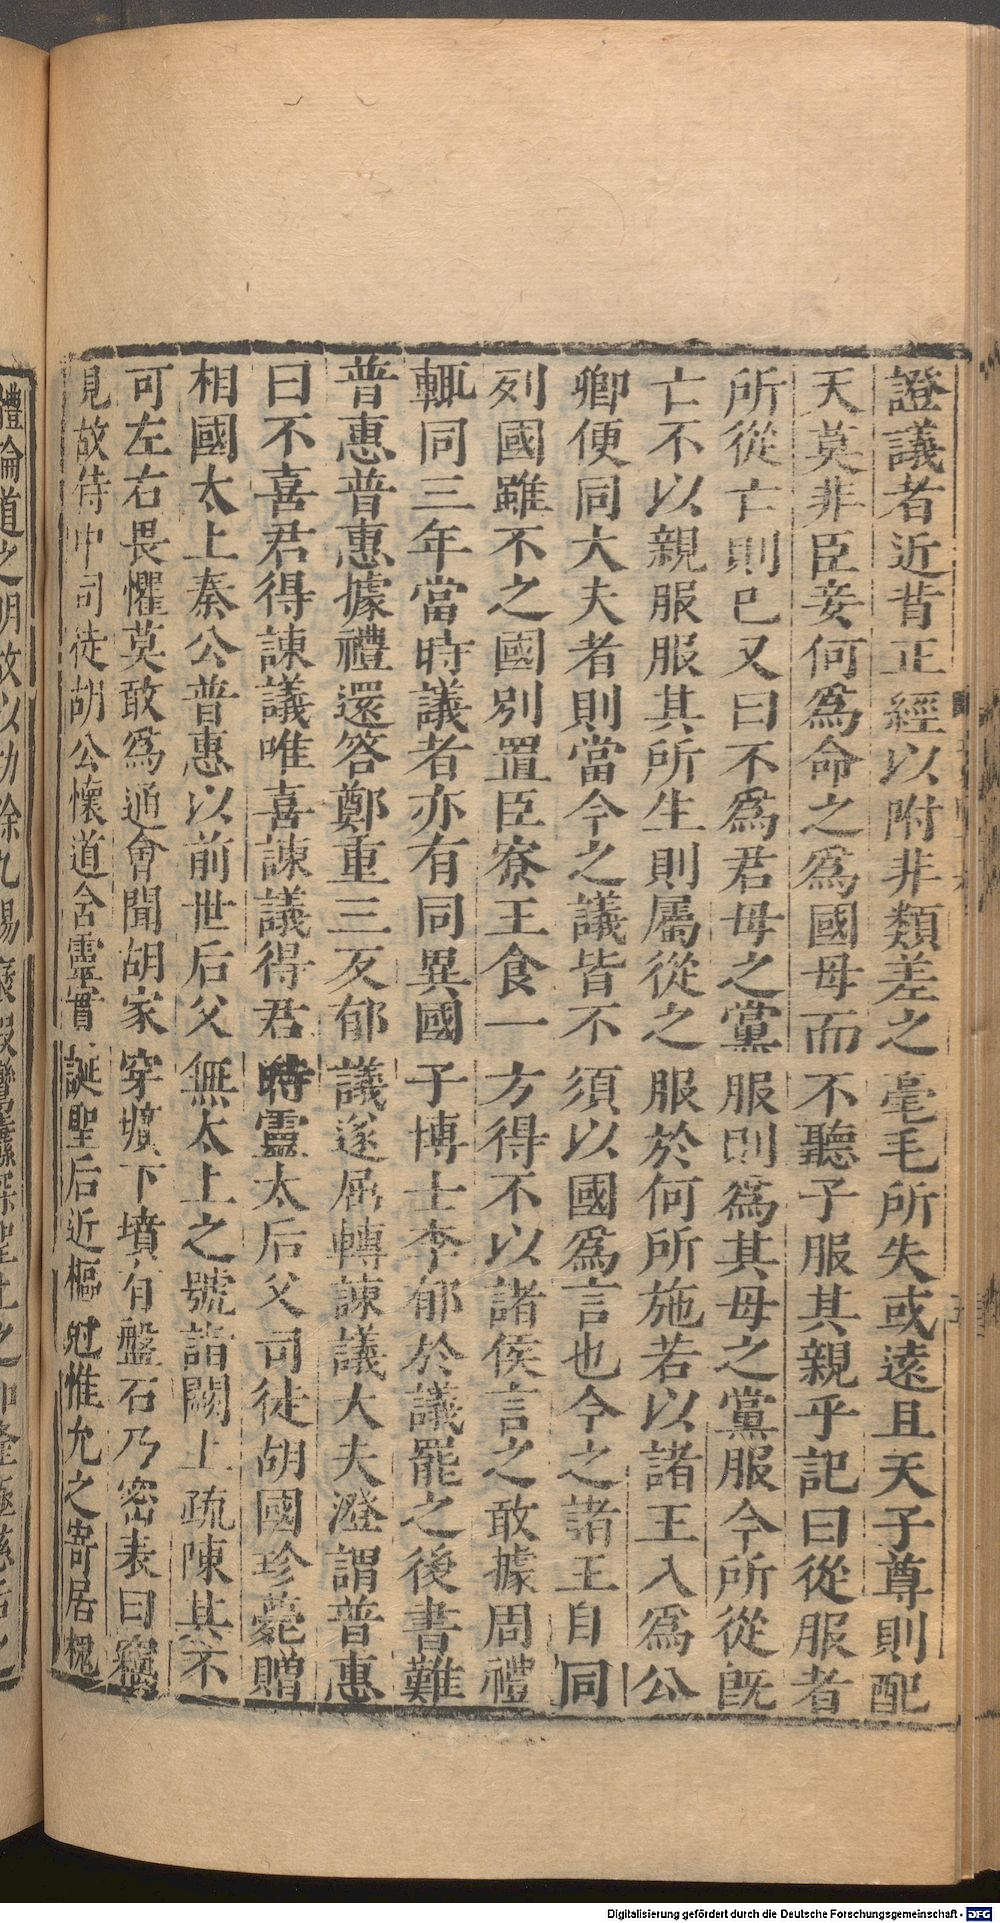 證議者近背正經以附非類差之毫毛所失或遠且天子尊則配
天莫非臣妾何爲命之爲國母而不聽子服其親乎記曰從服者
所從亡則已又曰不爲君母之黨服則爲其母之黨服今所從旣
亡不以親服服其所生則屬從之服於何所施若以諸王入爲公
卿便同大夫者則當今之議皆不須以國爲言也今之諸王自同
列國雖不之國別置臣寮王食一方得不以諸侯言之敢據周禮
輒同三年當時議者亦有同異國子博士李郁於議罷之後書難
普惠普惠據禮還答鄭重三反郁議遂屈轉諫議大夫澄謂普惠
曰不喜君得諫議唯喜諫議得君時靈太后父司徒胡國珍薨贈
相國太上秦公普惠以前世后父無太上之號詣闕上疏陳其不
可左右畏懼莫敢爲通會聞胡家穿壙下墳有盤石乃密表曰竊
見故侍中司徒胡公懷道含靈實誕聖后近樞剋惟允之寄居槐
體論道之明故以功餘九錫褒假鸞纛深聖上之 隆極慈后之
Digitalisierung gefördert durch die Deutsche Forschungsgemeinschaft - DFG